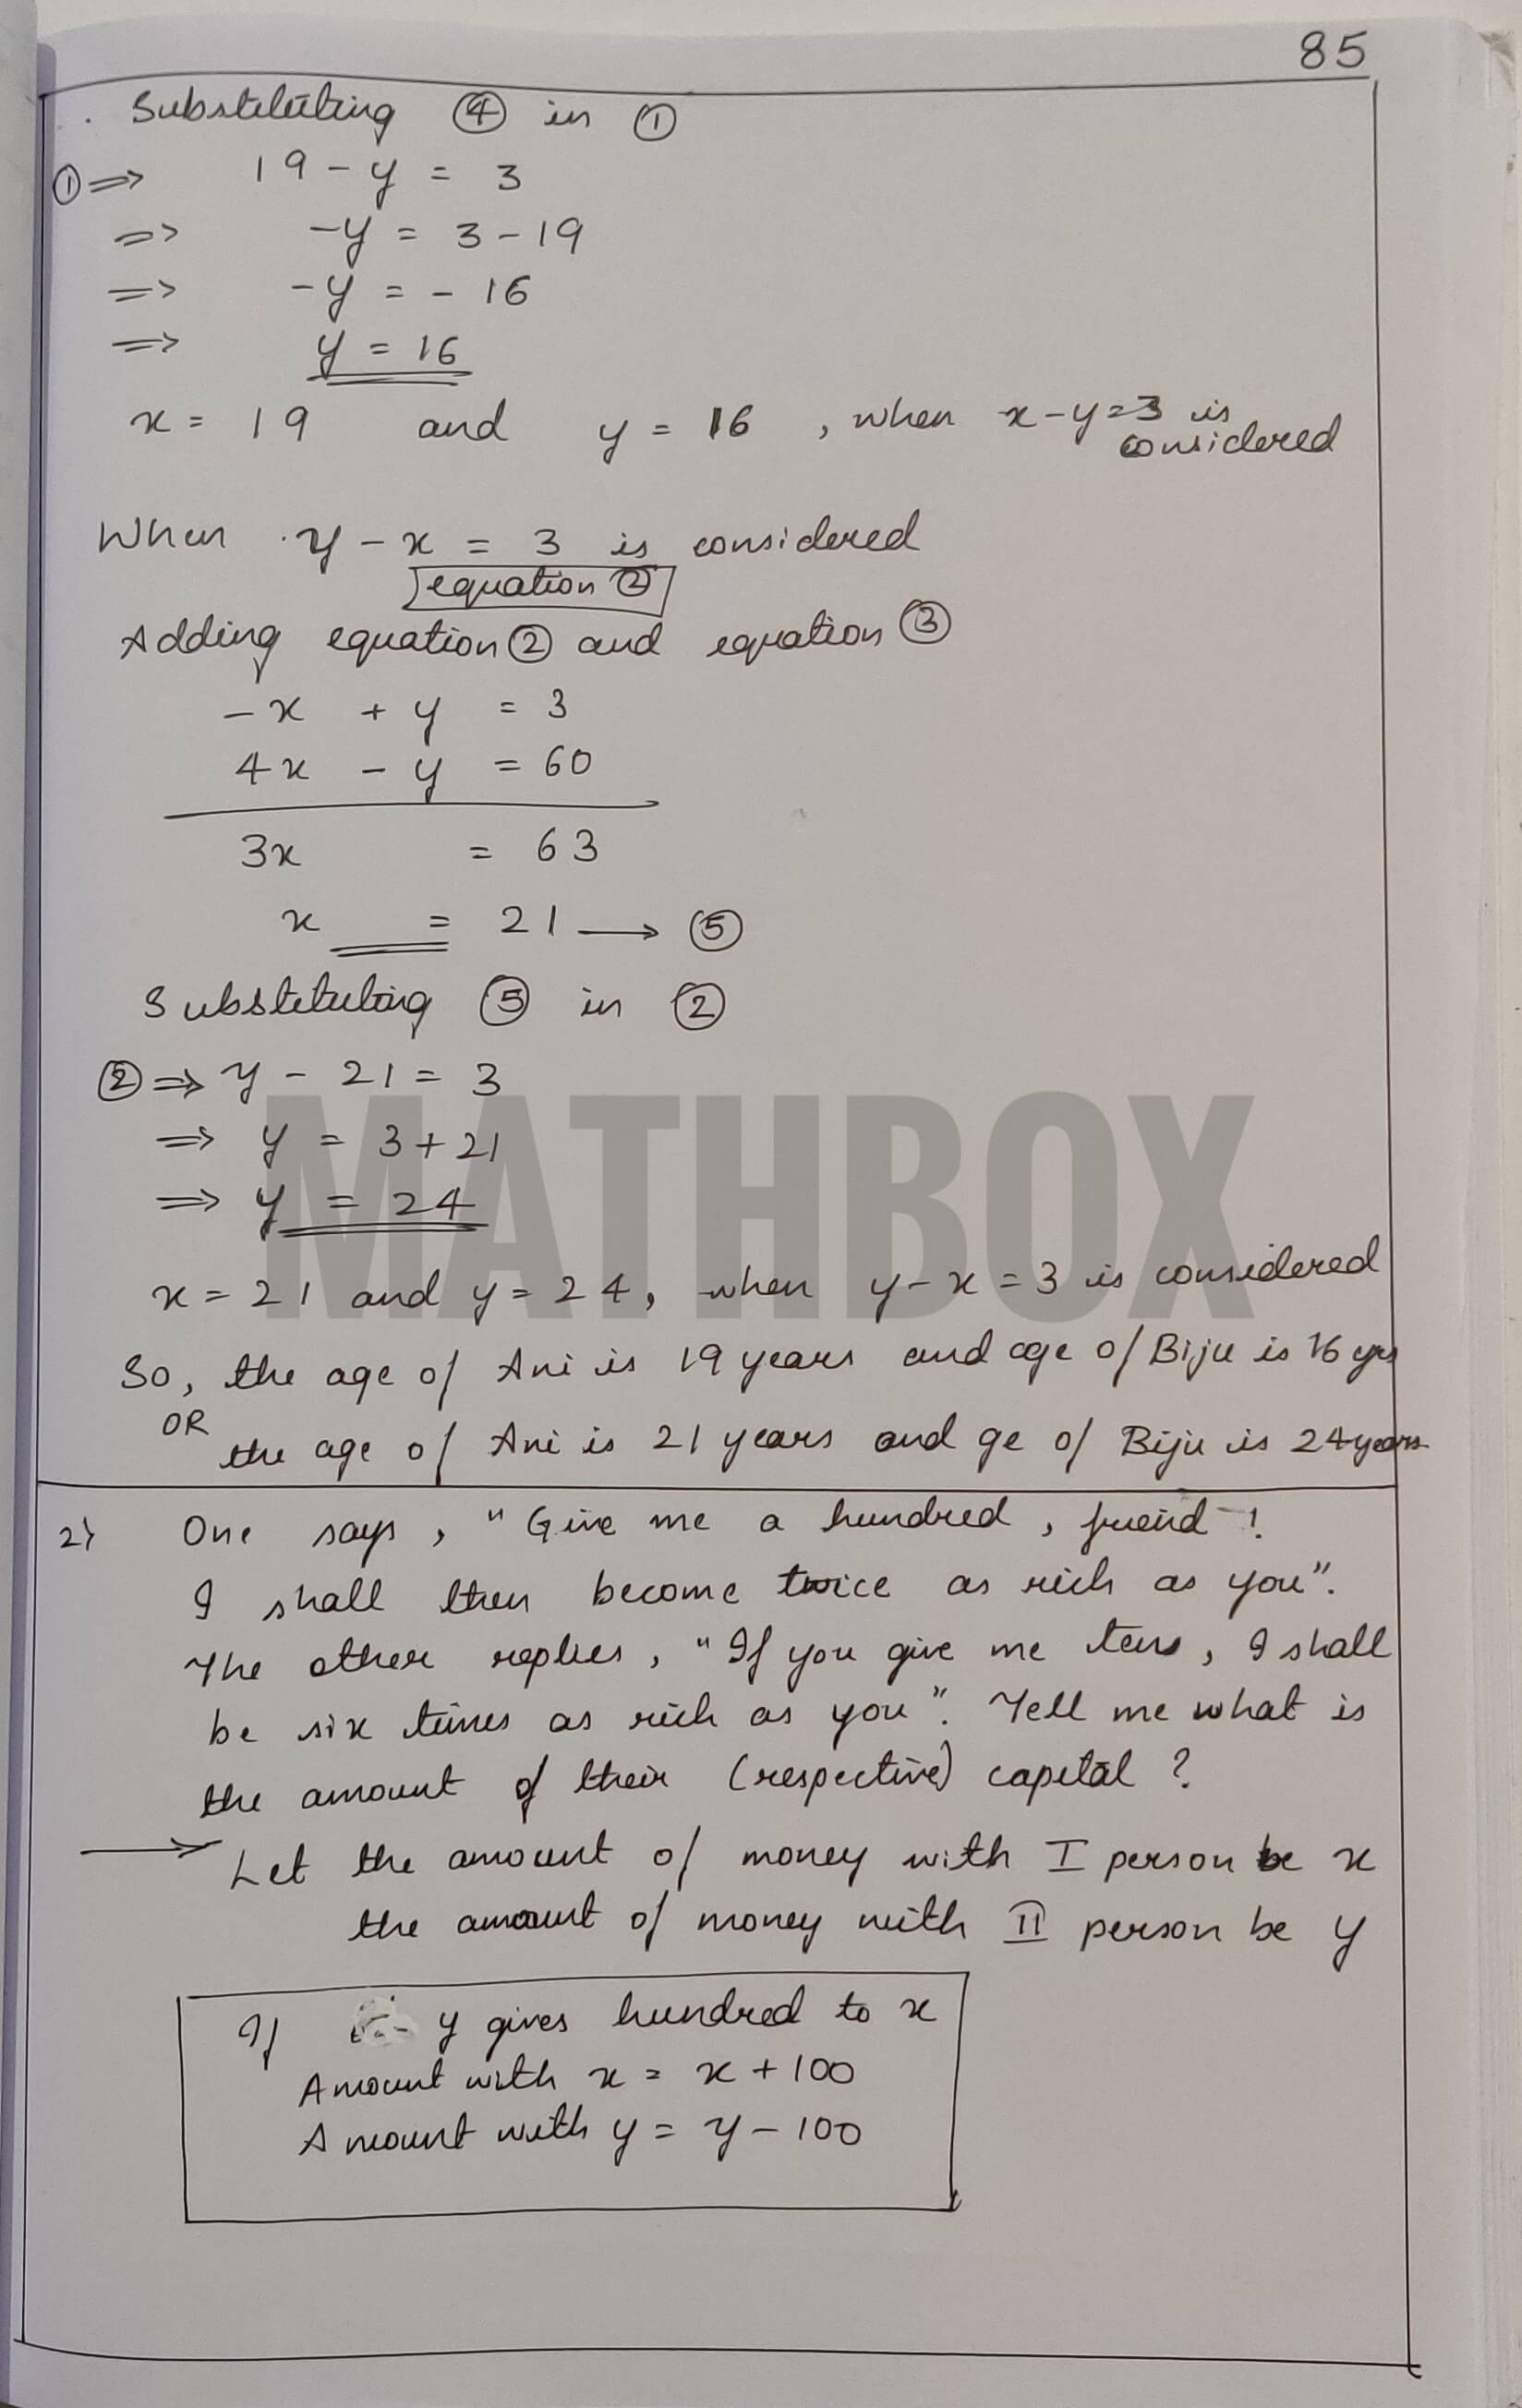 85
. Substituting ④ in ①
① ⇒ 19 - y = 3
⇒ -y = 3 - 19
⇒ -y = - 16
⇒ y = 16
x = 19 and y = 16 , when x - y = 3 is
considered
When y - x = 3 is considered
equation ②
Adding equation ② and equation ③
- x + y = 3
4x - y = 60
3x = 63
x = 21 → ⑤
Substituting ⑤ in ②
② ⇒ y - 21 = 3
⇒ y = 3 + 21
⇒ y = 24
MATHBOX
x = 21 and y = 24, when y - x = 3 is considered
So, the age of Ani is 19 years and age of Biju is 16 yrs
OR
the age of Ani is 21 years and ge of Biju is 24 years
2) One says, "Give me a hundred, friend !
I shall then become twice as rich as you".
The other replies, "If you give me ten, I shall
be six times as rich as you". Tell me what is
the amount of their (respective) capital ?
→ Let the amount of money with I person be x
the amount of money with II person be y
If y gives hundred to x
Amount with x = x + 100
Amount with y = y - 100